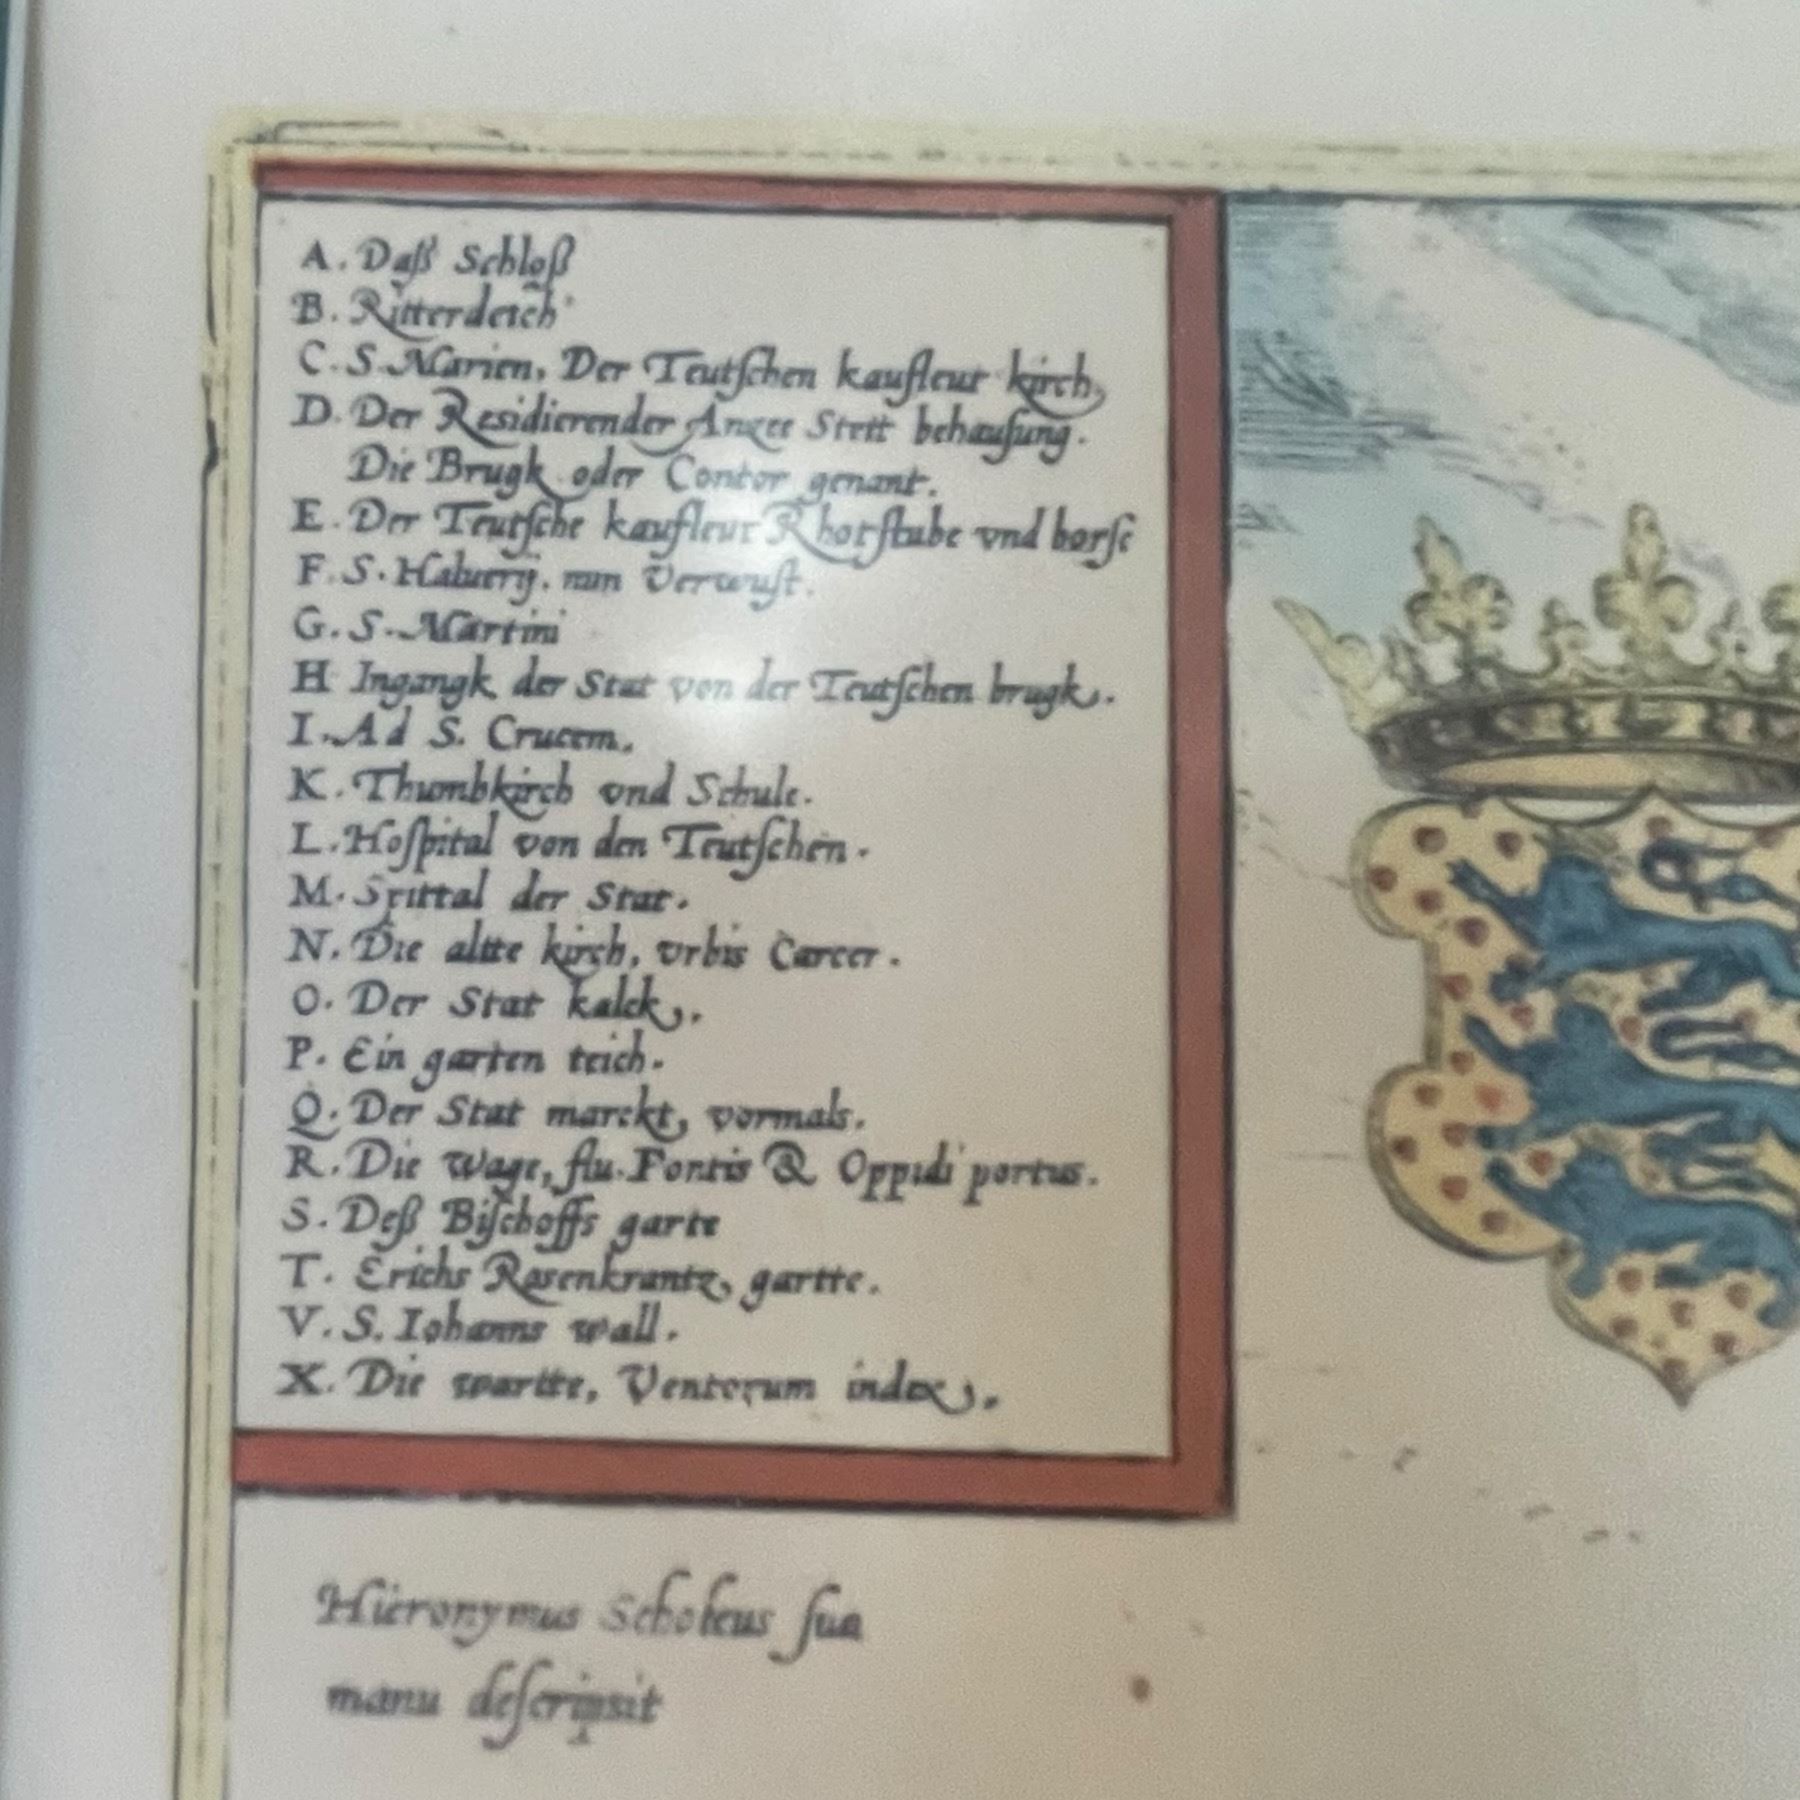 A. Daß Schloß
B. Ritterdeich
C. S. Marien, Der Teutſchen kaufleut kirch,
D. Der Residierender Anzee Stett behauſung.
Die Brugk oder Contor genant.
E. Der Teutſche kaufleut Rhotſtube vnd borſe
F. S. Haluerij. nun Verwuſt.
G. S. Martini
H Ingangk der Stat von der Teutſchen brugk.
I. Ad S. Crucem.
K. Thumbkirch vnd Schule.
L. Hoſpital von den Teutſchen.
M. Spittal der Stat.
N. Die altte kirch, vrbis Carcer.
O. Der Stat kalck.
P. Ein garten teich.
Q. Der Stat marckt, vormals.
R. Die wage, flu. Fontis & Oppidi portus.
S. Deß Biſchoffs garte
T. Erichs Rosenkrantz, gartte.
V. S. Iohanns wall.
X. Die wartte, Ventorum index.
Hieronymus Scholeus ſua
manu deſcripsit